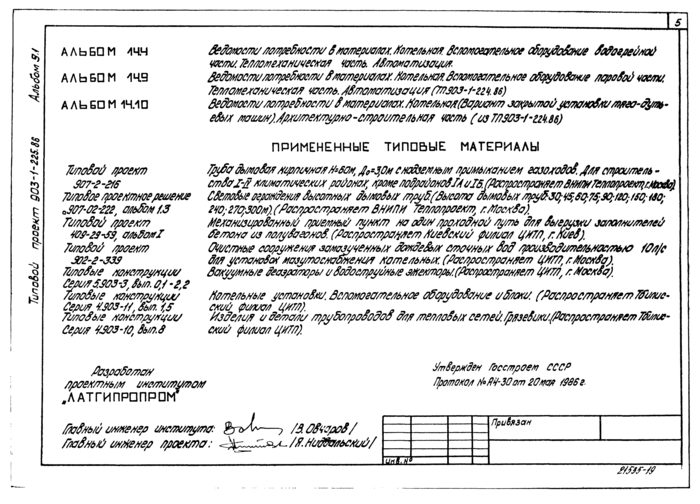 5
Альбом 9.1
Типовой проект 903-1-225.86
АЛЬБОМ 14.4 Ведомости потребности в материалах. Котельная. Вспомогательное оборудование водогрейной
части. Тепломеханическая часть. Автоматизация.
АЛЬБОМ 14.9 Ведомости потребности в материалах. Котельная. Вспомогательное оборудование паровой части.
Тепломеханическая часть. Автоматизация (ТП903-1-224.86)
АЛЬБОМ 14.10 Ведомости потребности в материалах. Котельная (Вариант закрытой установки тяго-дуть-
евых машин). Архитектурно-строительная часть (из ТП903-1-224.86)
ПРИМЕНЕННЫЕ ТИПОВЫЕ МАТЕРИАЛЫ
Типовой проект Труба дымовая кирпичная Н=60м, До=3,0м с надземным примыканием газоходов. Для строитель-
907-2-216 ства I-IV климатических районах, кроме подрайонов IА и IБ. (Распространяет ВНИПИ Теплопроект, г. Москва).
Типовое проектное решение Световые ограждения высотных дымовых труб. (Высота дымовых труб 30; 45; 60; 75; 90; 120; 150; 180;
907-02-222, альбом 1,3 240; 270; 300м). (Распространяет ВНИПИ Теплопроект, г. Москва).
Типовой проект Механизированный приемный пункт на один проходной путь для выгрузки заполнителей
409-29-59, альбом I бетона из полувагонов (Распространяет Киевский филиал ЦИТП, г. Киев).
Типовой проект Очистные сооружения замазученных дождевых сточных вод производительностью 10л/с
902-2-339 для установок мазутоснабжения котельных. (Распространяет ЦИТП, г. Москва).
Типовые конструкции Вакуумные деаэраторы и водоструйные эжекторы. (Распространяет ЦИТП, г. Москва).
Серия 5.903-3, вып. 0,1-2,2
Типовые конструкции Котельные установки. Вспомогательное оборудование и блоки. (Распространяет Тбилис-
Серия 4.903-11, вып. 1,5 ский филиал ЦИТП).
Типовые конструкции Изделия и детали трубопроводов для тепловых сетей. Грязевики. (Распространяет Тбилис-
Серия 4.903-10, вып. 8 ский филиал ЦИТП).
Разработан
проектным институтом
„ЛАТГИПРОПРОМ"
Утвержден Госстроем СССР
Протокол № АЧ-30 от 20 мая 1986 г.
Главный инженер института: /З. Овчаров/
Главный инженер проекта: /Я. Нидвальский/
Привязан
Инв. №
21535-19